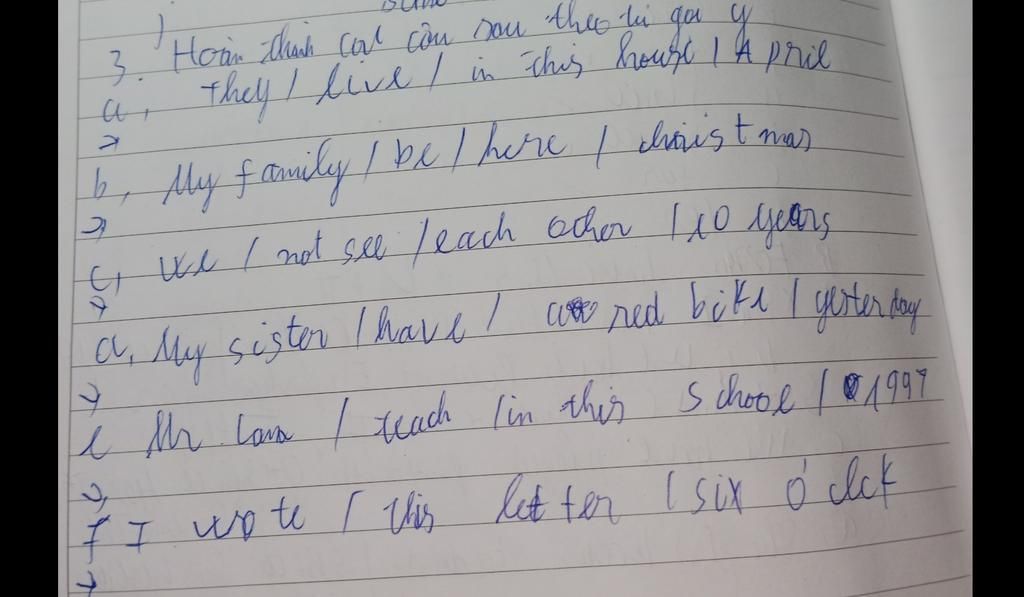 3. Hoàn thành các câu sau theo từ gợi ý
a, They / live / in this house / April
→
b, My family / be / here / christmas
→
c, we / not see / each other / 10 years
→
d, My sister / have / a red bike / yesterday
→
e Mr Lam / teach / in this school / 1997
→
f I wote / this letter / six o'clck
→